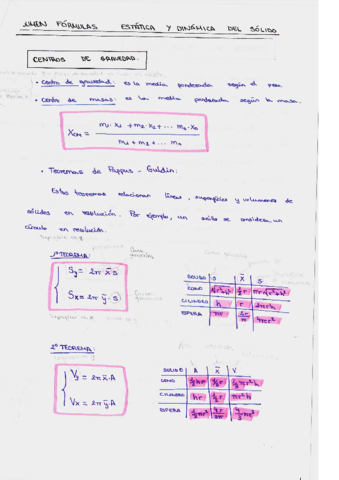 FÓRMULAS ESTÁTICA Y DINÁMICA DEL SÓLIDO
CENTROS DE GRAVEDAD.
• Centro de gravedad: es la media ponderada según el peso
• Centro de masas: es la media ponderada según la masa.
X_CM = m₁·x₁ + m₂·x₂ + ... mₙ·xₙ / m₁ + m₂ + ... mₙ
• Teoremas de Pappus - Guldin:
Estos teoremas relacionan líneas, superficies y volúmenes de
sólidos en revolución. Por ejemplo, un se considera un
círculo en revolución.
1º TEOREMA:
Sy = 2π x̄·s
Sx = 2π ȳ·s
SOLIDO S x̄ S
CONO √r²+h² ½r
CILINDRO h r 2πrh
ESFERA πr 2r/π 4πr²
2º TEOREMA:
Vy = 2π x̄·A
Vx = 2π ȳ·A
SOLIDO A x̄ V
CONO ½hr ⅓r ⅓πr²h
CILINDRO hr ½r πr²h
ESFERA ½πr² 4r/3π 4/3πr³